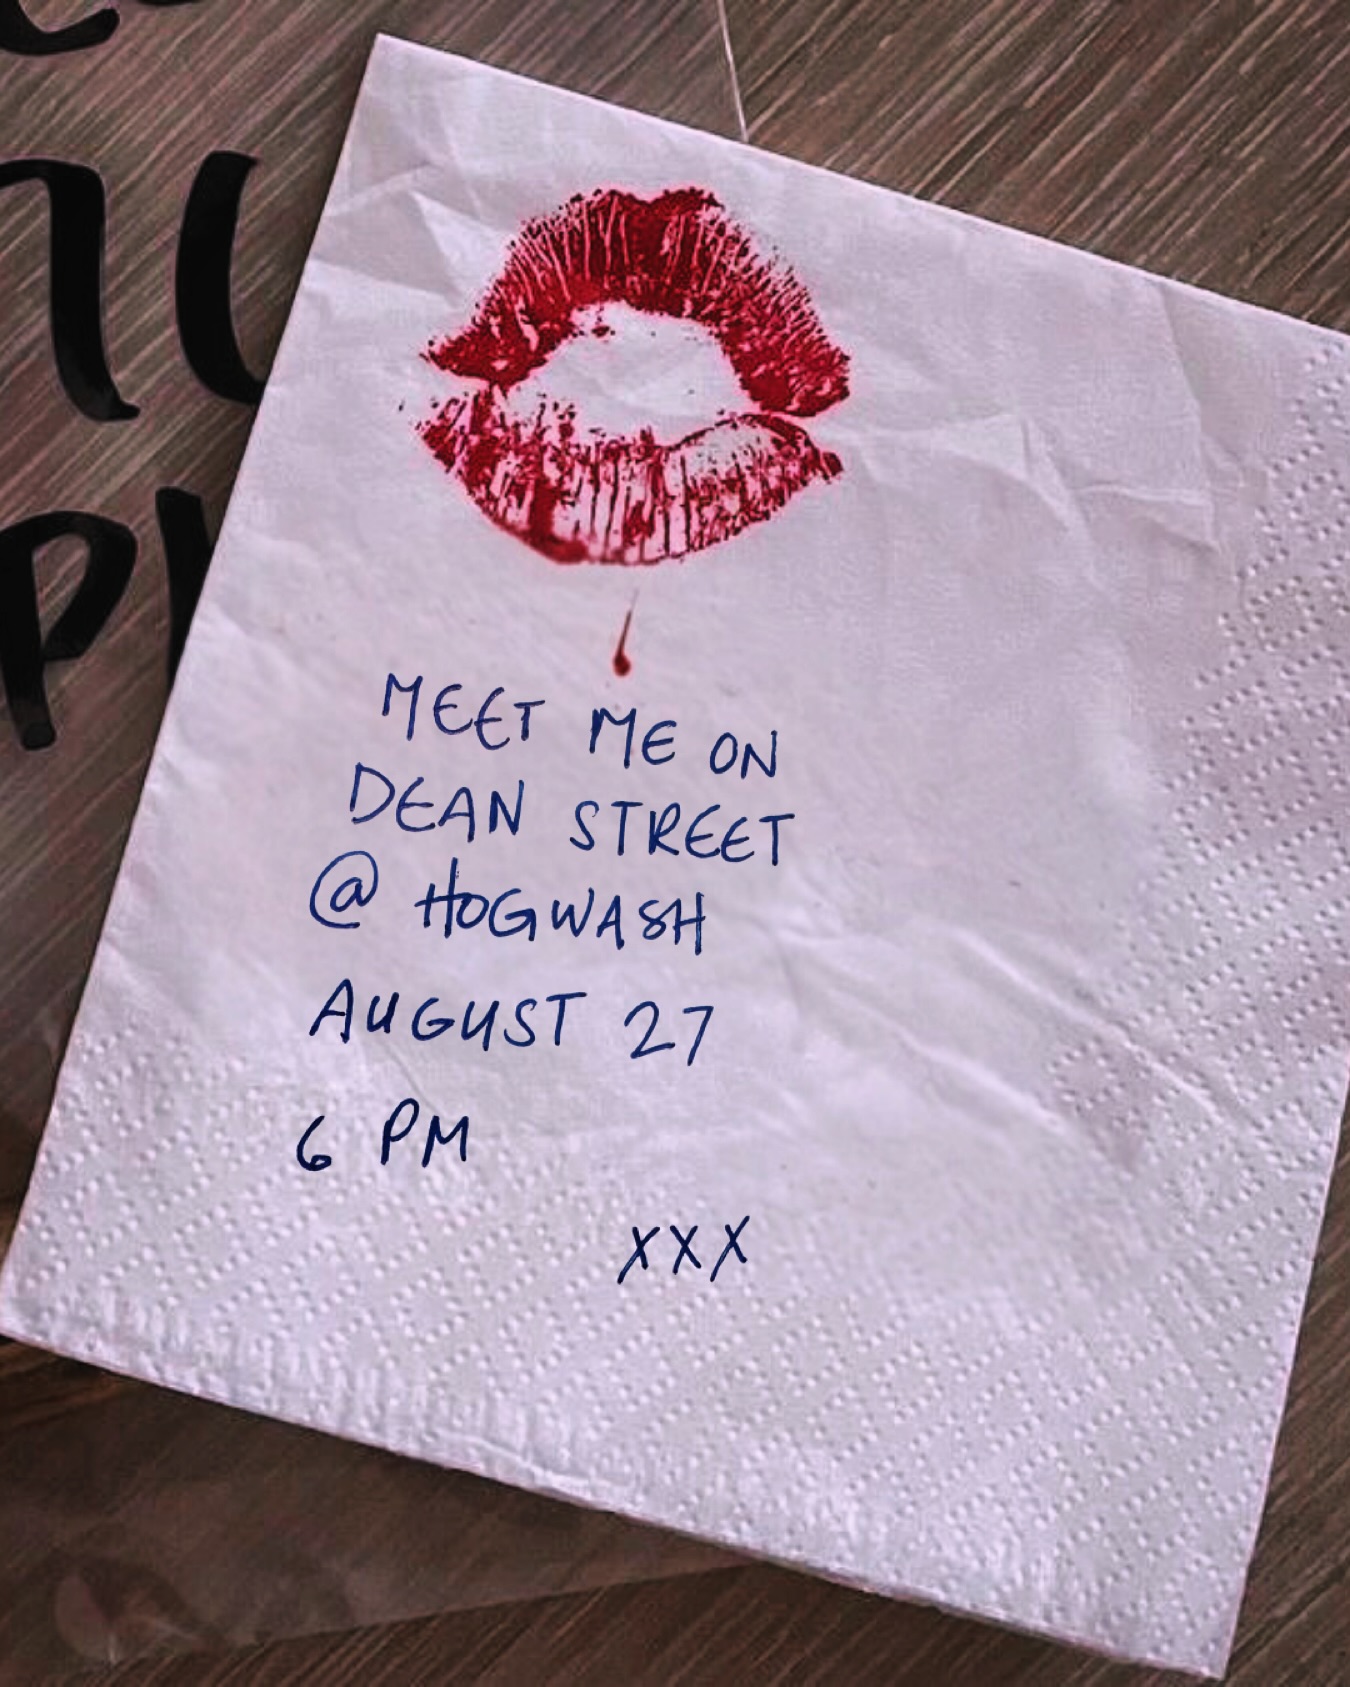 MEET ME ON
DEAN STREET
@ HOGWASH
AUGUST 27
6 PM
XXX